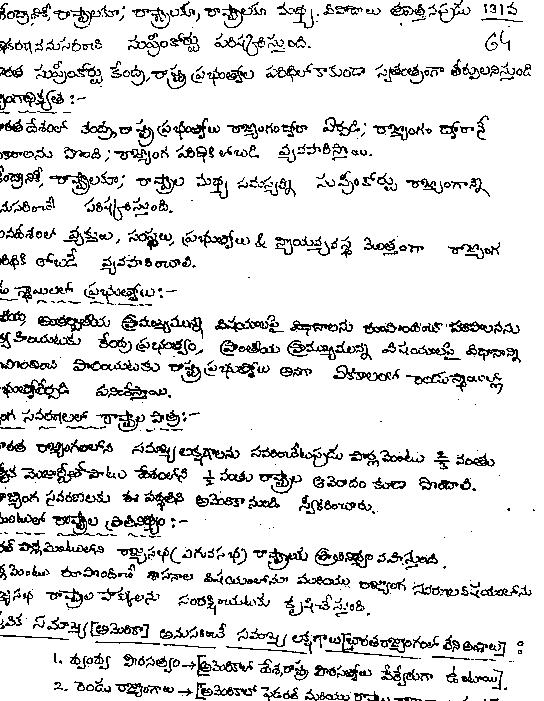 కేంద్రానికీ, రాష్ట్రాలకూ; రాష్ట్రాలకూ, రాష్ట్రాలకూ మధ్య వివాదాలు తలెత్తినప్పుడు 131వ
ప్రకరణననుసరించి సుప్రీంకోర్టు పరిష్కరిస్తుంది. 64
సుప్రీంకోర్టు కేంద్ర, రాష్ట్ర ప్రభుత్వాల పరిధిలో కాకుండా స్వతంత్రంగా తీర్పులనిస్తుంది
దేశంలో కేంద్ర, రాష్ట్ర ప్రభుత్వాలు రాజ్యాంగంద్వారా ఏర్పడి; రాజ్యాంగం ద్వారానే
పొంది; రాజ్యాంగ పరిధికి లోబడి వ్యవహరిస్తాయి.
కేంద్రానికీ, రాష్ట్రాలకూ; రాష్ట్రాల మధ్య సమస్యల్ని సుప్రీంకోర్టు రాజ్యాంగాన్ని
పరిష్కరిస్తుంది.
వ్యక్తులు, సంస్థలు, ప్రభుత్వాలు & న్యాయవ్యవస్థ మొత్తంగా రాజ్యాంగ
లోబడే వ్యవహరించాలి.
స్థాయిలలో ప్రభుత్వాలు:-
అంతర్జాతీయ ప్రాముఖ్యమున్న విషయాలపై విధానాలను రూపొందించి పరిపాలనను
కేంద్ర ప్రభుత్వం, ప్రాంతీయ ప్రాముఖ్యమున్న విషయాలపై విధానాన్ని
రాష్ట్ర ప్రభుత్వాలు అనగా ఏకకాలంలో రెండుస్థాయిల్లో
పనిచేస్తాయి.
సవరణలలో రాష్ట్రాల పాత్ర:-
రాజ్యాంగంలోని సమాఖ్య లక్షణాలను సవరించేటప్పుడు పార్లమెంటు 2/3 వంతు
మెజార్టీతోపాటు దేశంలోని 1/2 వంతు రాష్ట్రాల ఆమోదం కూడా పొందాలి.
రాజ్యాంగ సవరణలకు ఈ పద్ధతిని అమెరికా నుండి స్వీకరించారు.
రాష్ట్రాల ప్రాతినిధ్యం :-
రాజ్యసభ (ఎగువసభ) రాష్ట్రాలకు ప్రాతినిధ్యం వహిస్తుంది.
రూపొందించే శాసనాల విషయంలోను మరియు రాజ్యాంగ సవరణల విషయంలోను
రాజ్యసభ రాష్ట్రాల హక్కులను సంరక్షించుటకు కృషిచేస్తుంది.
సమాఖ్య [అమెరికా] అనుసరించే సమాఖ్య లక్షణాలు [భారతరాజ్యాంగంలో లేని అంశాలు] :
1. ద్వంద్వ పౌరసత్వం → [అమెరికాలో దేశ, రాష్ట్ర పౌరసత్వాలు వేర్వేరుగా ఉంటాయి].
2. రెండు రాజ్యాంగాలు → [అమెరికాలో ఫెడరల్ మరియు